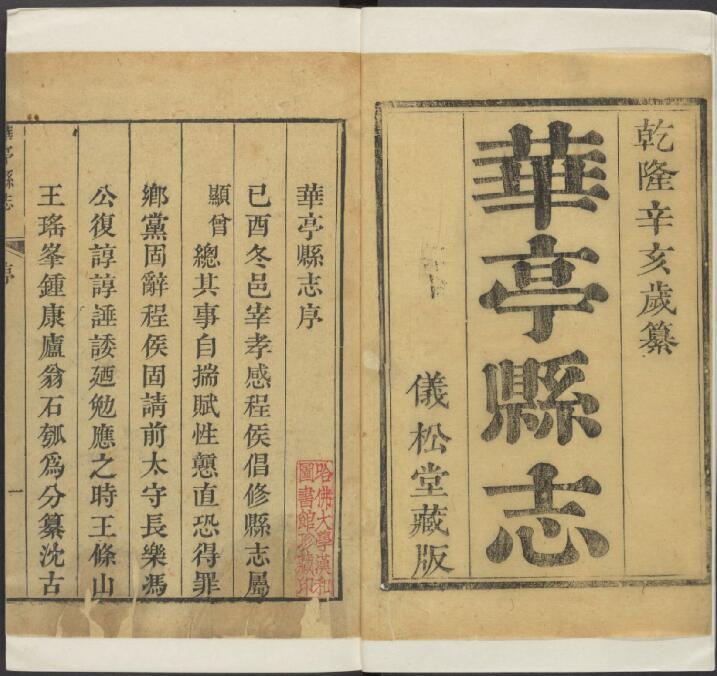 乾隆辛亥歲纂
華亭縣志
儀松堂藏版
華亭縣志序
己酉冬邑宰孝感程侯倡修縣志屬
顯曾總其事自揣賦性戇直恐得罪
鄉黨固辭程侯固請前太守長樂馮
公復諄諄諈諉廼勉應之時王條山
王瑤峯鍾康廬翁石瓠爲分纂沈古
華亭縣志
序
一
哈佛大學漢和
圖書館珍藏印